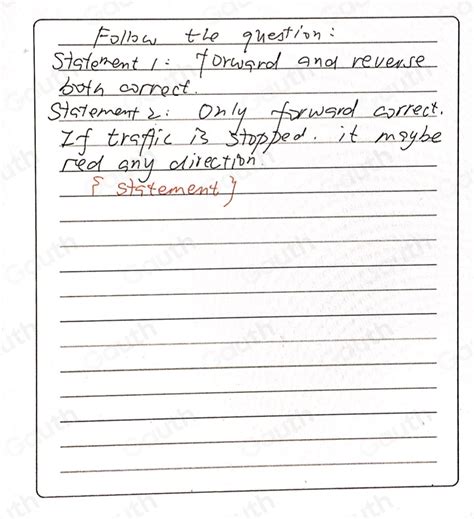 Follow the question:
Statement 1: forward and reverse
both correct.
Statement 2: Only forward correct.
If traffic is stopped. it maybe
red any direction.
{ statement }